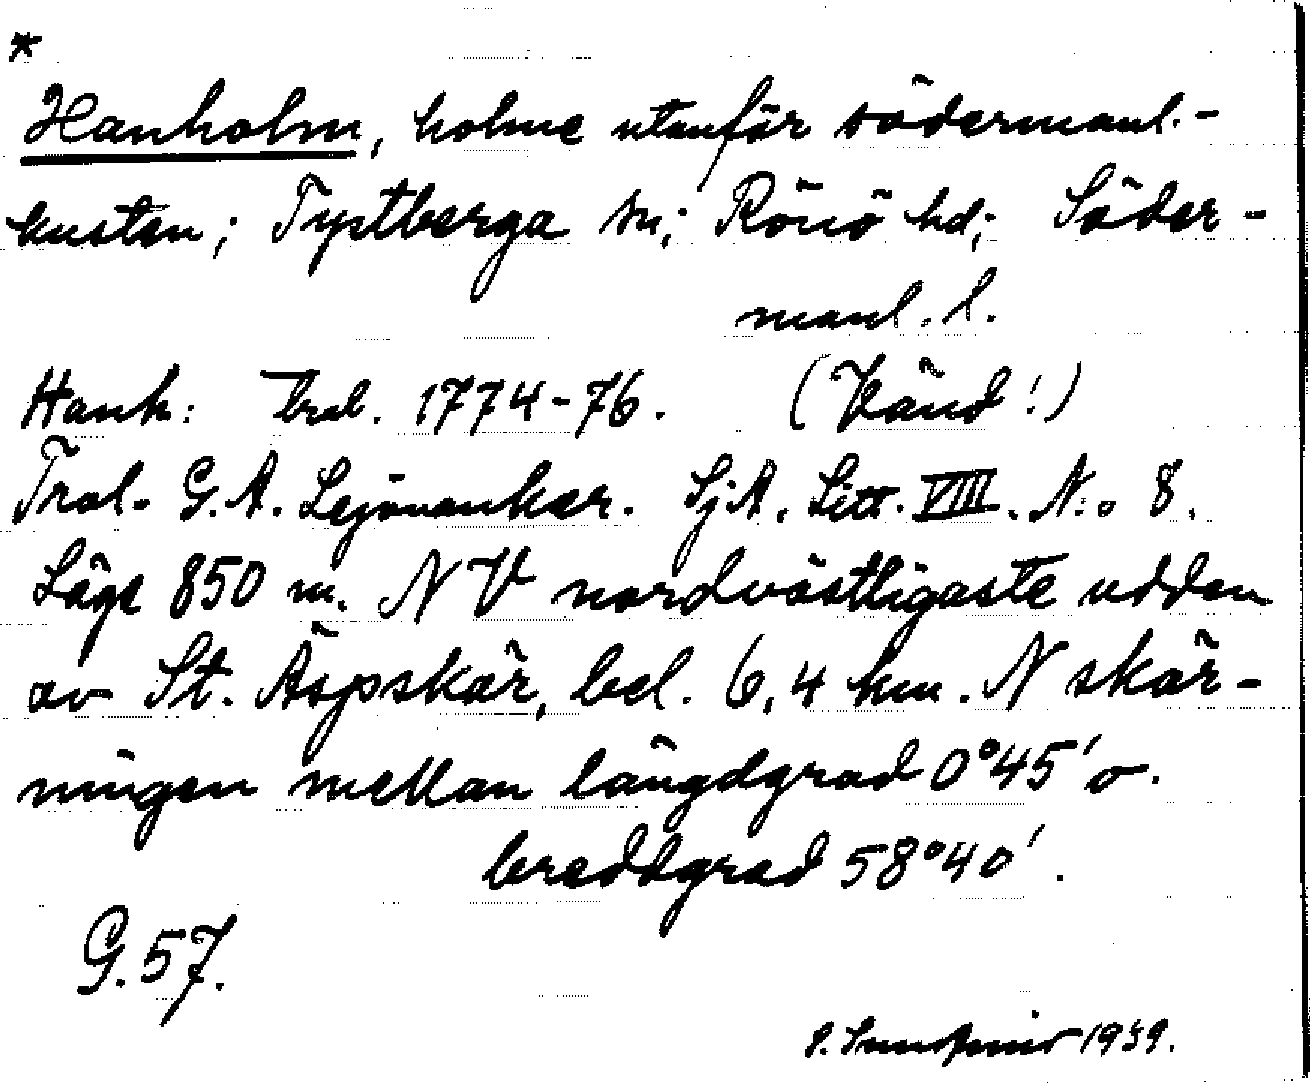 *
Hanholm, holme utanför södermanl.-
kusten; Tystberga sn; Rönö hd; Söder-
manl. l.
Hanh: Trol. 1774-76. (Känd!)
Trol. G. A. Lejonankar. SjA. Litt. VIII. N:o 8.
Läge 850 m. NV nordvästligaste udden
av St. Äspskär, bel. 6,4 km. N skär-
ningen mellan längdgrad 0°45' o.
breddgrad 58°40'.
G. 57.
1939.